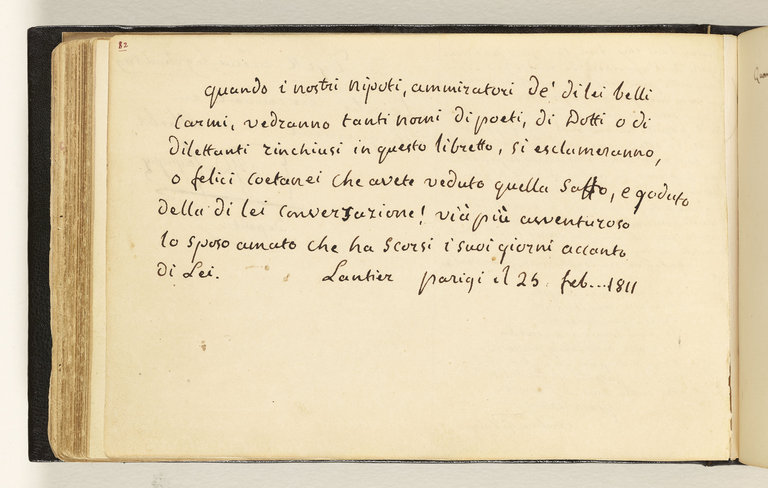 82
quando i nostri nipoti, ammiratori de' di lei belli
carmi, vedranno tanti nomi di poeti, di Dotti o di
dilettanti rinchiusi in questo libretto, si esclameranno,
o felici coetanei che avete veduto quella Saffo, e goduto
della di lei conversazione! via più avventuroso
lo sposo amato che ha scorsi i suoi giorni accanto
di Lei. Lantier parigi il 25 feb... 1811